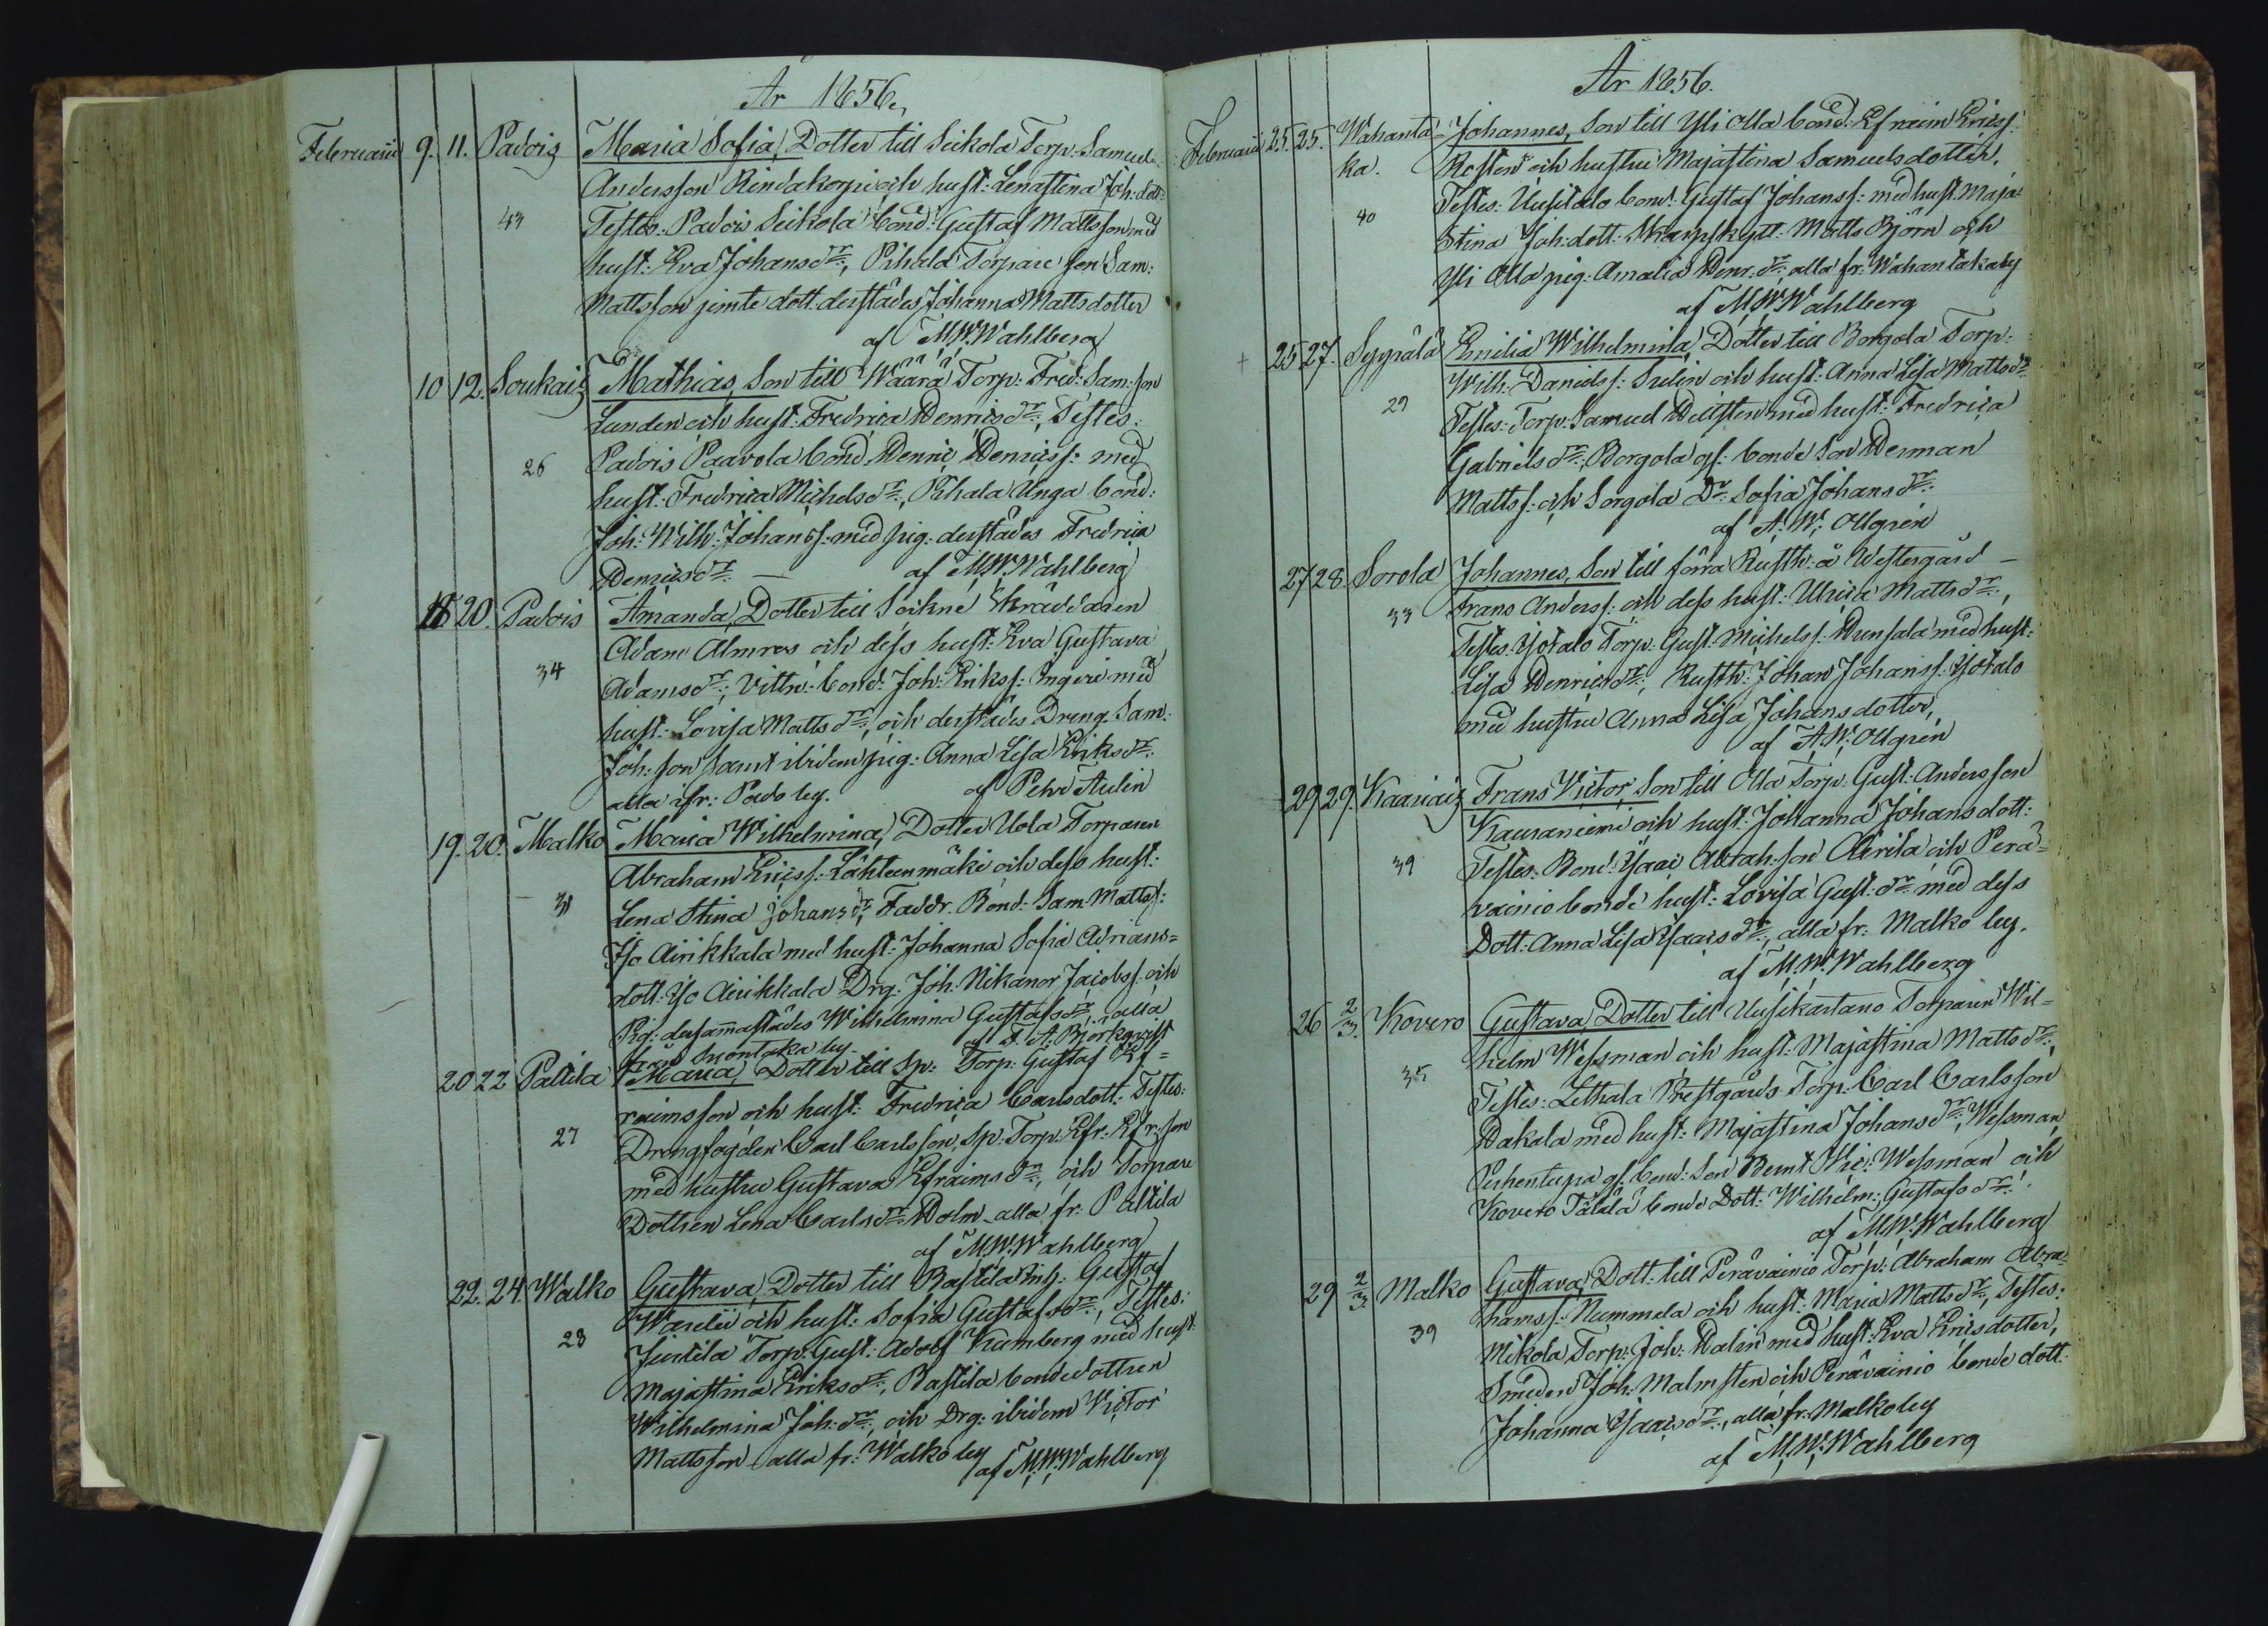 År 1856.
Februarii 9. 11. Padois Maria Sofia, Dotter till Seikola Torp: Samuel
Andersson Rindakorpi och hust: Lenastina Joh: dott:
43 Testes: Padois Seikola Bond: Gustaf Mattsson med
hust: Eva Johans dr:, Pihala Torpare son Sam:
Mattsson jemte dott: derstädes Johanna Mattsdotter
af M.W. Wahlberg
10 12. Soukais Mathias, Son till Wäärä Torp: Fred: Sam: son
Lunden och hust: Fredrica Henrics dr:, Testes:
26 Padois Paavola bond. Henric Henricss: med
hust: Fredrica Michels dr:, Pihala Unga bond:
Joh: Wilh: Johanss: med pig: derstädes Fredrica
Henrics dr: — af M.W. Wahlberg
18 20. Padois Amanda, Dotter till Sockne Skräddaren
Adam Almros och dess hust: Eva Gustava
34 Adams dr:, Vittn: bond: Joh: Erikss: Ingeri med
hust: Lovisa Matts dr:, och derstädes Dreng Sam:
Joh: son samt ibidem pig: Anna Lisa Eriks dr:
alla ifr: Pado by. af Petr Aulin
19. 20. Malko Maria Wilhelmina, Dotter Uola Torparen
Abraham Ericss: Lähteenmäki och dess hust:
31 Lena Stina Johans dr, Faddr. Bond: Sam: Mattss:
Iso Airikkala med hust: Johanna Sofia Adrians=
dott: Iso Airikkala Drg. Joh: Nikanor Jacobss: och
Pig: dersammastädes Wilhelmina Gustafs dr, alla
från Suontaka by. af F. A. Björkqvist
20 22 Palttila Maria, Dotter till Sp: Torp: Gustaf Ef=
raimsson och hust: Fredrica Carlsdott: Testes:
27 Drengfogden Carl Carlsson, Sp: Torp: Efr: Efr: son
med hustru Gustava Efraims dr:, och Torpare
Dottren Lena Carls dr: Holm alla fr: Palttila
af M.W. Wahlberg
22. 24. Walko Gustava, Dotter till Pastila Inh: Gustaf
Warelii och hust: Sofia Gustafs dr:, Testes:
28 Juntila Torp: Gust: Adolf Kumberg med hust:
Majastina Eriks dr:, Pastila bondedottren
Wilhelmina Joh: dr:, och Drg: ibidem Victor
Mattsson alla fr: Walko by af M.W. Wahlberg
År 1856.
Februarii 25. 25. Wahanta- Johannes, Son till Yli Olla bond: Efraim Ericss:
ka. Rosten och hustru Majastina Samuelsdotter.
40 Testes: Uusitalo bond: Gustaf Johanss: med hust: Maja
Stina Joh: dott: Skarpskytt: Matts Björn och
Yli Olla pig: Amalia Henr: dr: alla fr: Wahantakaby
af M.W. Wahlberg
+ 25 27. Seppälä Emilia Wilhelmina, Dotter till Borgola Torp:
Wilh: Danielss: Sulin och hust: Anna Lisa Matts dr:
29 Testes: Torp: Samuel Hellsten med hust: Fredrica
Gabriels dr:, Borgola gl: bonde Son Herman
Mattss: och Sorgola Dr: Sofia Johans dr:
af A: W: Ollgren
27 28. Sorola Johannes, Son till förra Rusth: å Westergård —
33 Frans Anderss: och dess hust: Ulrica Matts dr:,
Testes: Isotalo Torp: Gust: Michelss: Hunsala med hust:
Lisa Henrics dr:, Rusth: Johan Johanss: Isotalo
med hustru Anna Lisa Johansdotter,
af A:W: Ollgren
29 29. Kaariais Frans Victor, Son till Olla Torp: Gust: Andersson
Kauraniemi och hust: Johanna Johansdott:
39 Testes: Bond: Isaac Abrah: son Airila och Perä=
vainio bonde hust: Lovisa Gust: dr: med dess
Dott: Anna Lisa Isaacs dr:, alla fr: Malko by.
af M.W. Wahlberg
26 2/3. Kovero Gustava, Dotter till Uusikartano Torparen Wil=
helm Wessman och hust: Majastina Matts dr:,
35 Testes: Lethala Prestgårds Torp: Carl Carlsson
Hakala med hust: Majastina Johans dr:, Wessman
gl: bond: Son Bernt Vic: Wessman och
Kovero Tälälä bonde Dott: Wilhelm: Gustafs dr:
af M.W. Wahlberg
29 2/3. Malko Gustava, Dott: till Perävainio Torp: Abraham Abra=
hamss: Nummela och hust: Maria Matts dr:, Testes:
39 Mikola Torp: Joh: Dalin med hust: Eva Ericsdotter,
Smeden Joh: Malmsten och Perävainio bonde dott:
Johanna Isaacs dr:, alla fr: Malko by
af M.W. Wahlberg